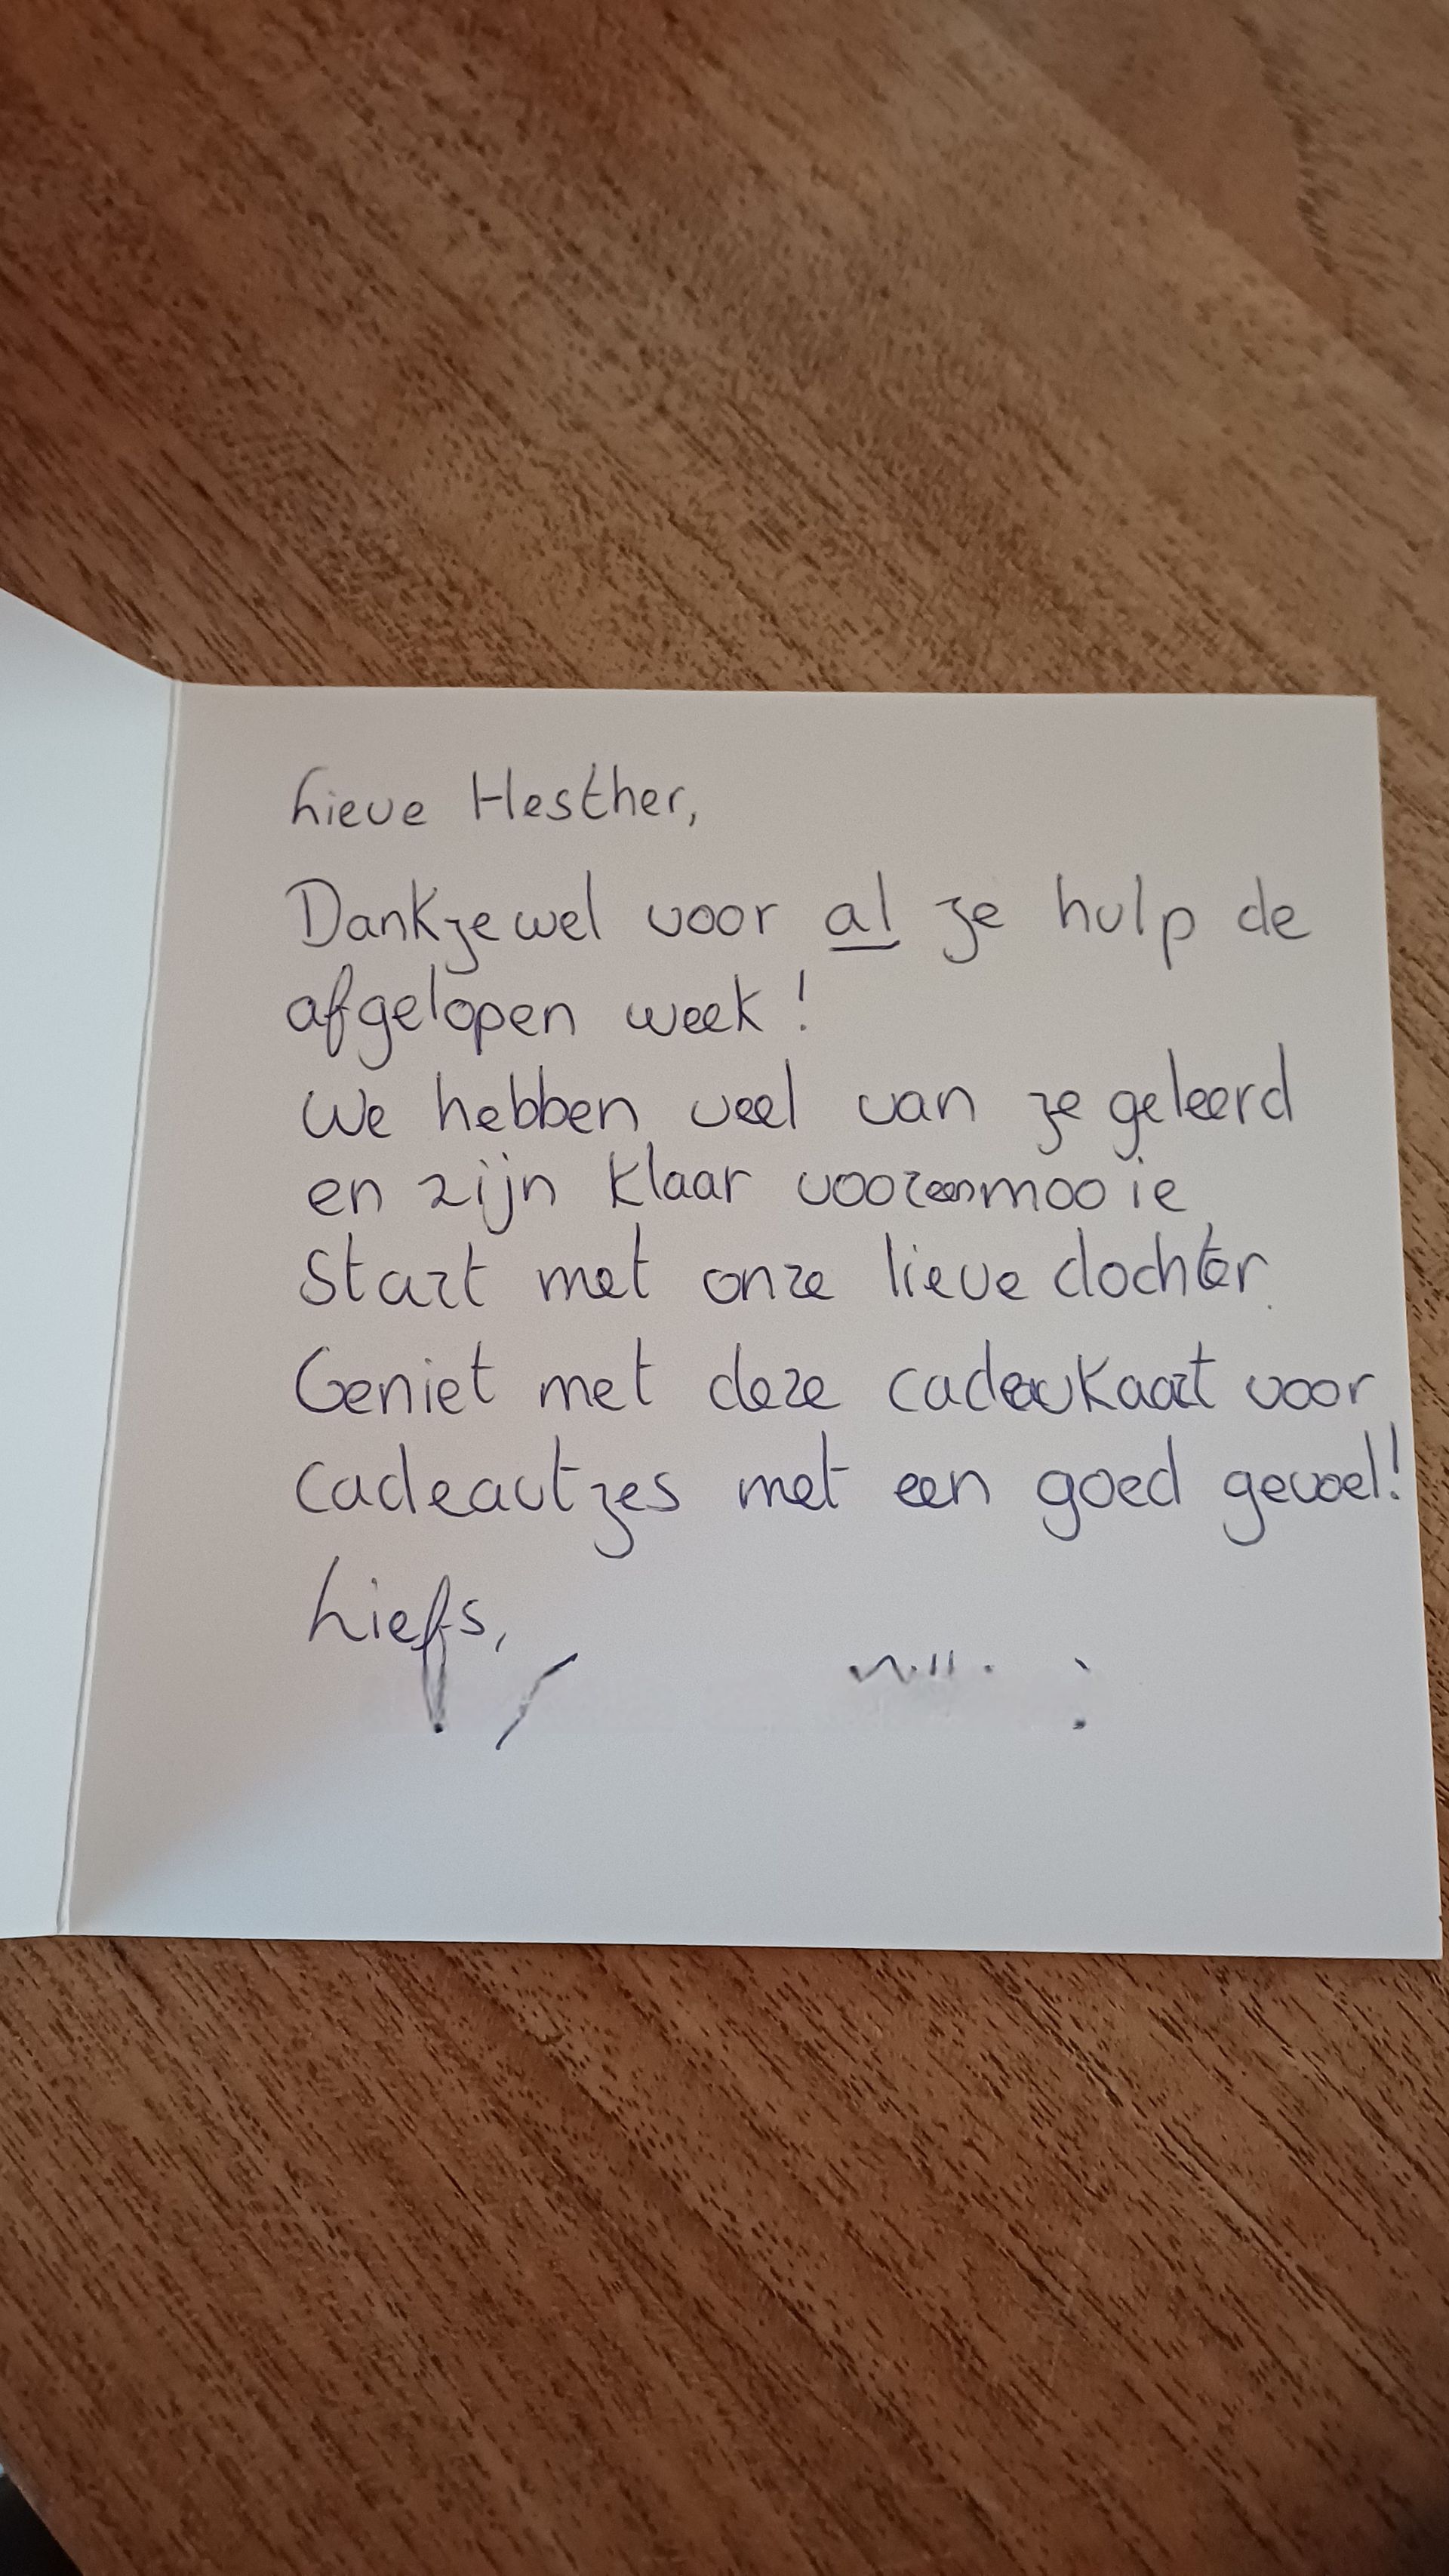 Lieve Hesther,
Dankjewel voor al je hulp de
afgelopen week!
We hebben veel van je geleerd
en zijn klaar voor een mooie
start met onze lieve dochter.
Geniet met deze cadeaukaart voor
cadeautjes met een goed gevoel!
Liefs,